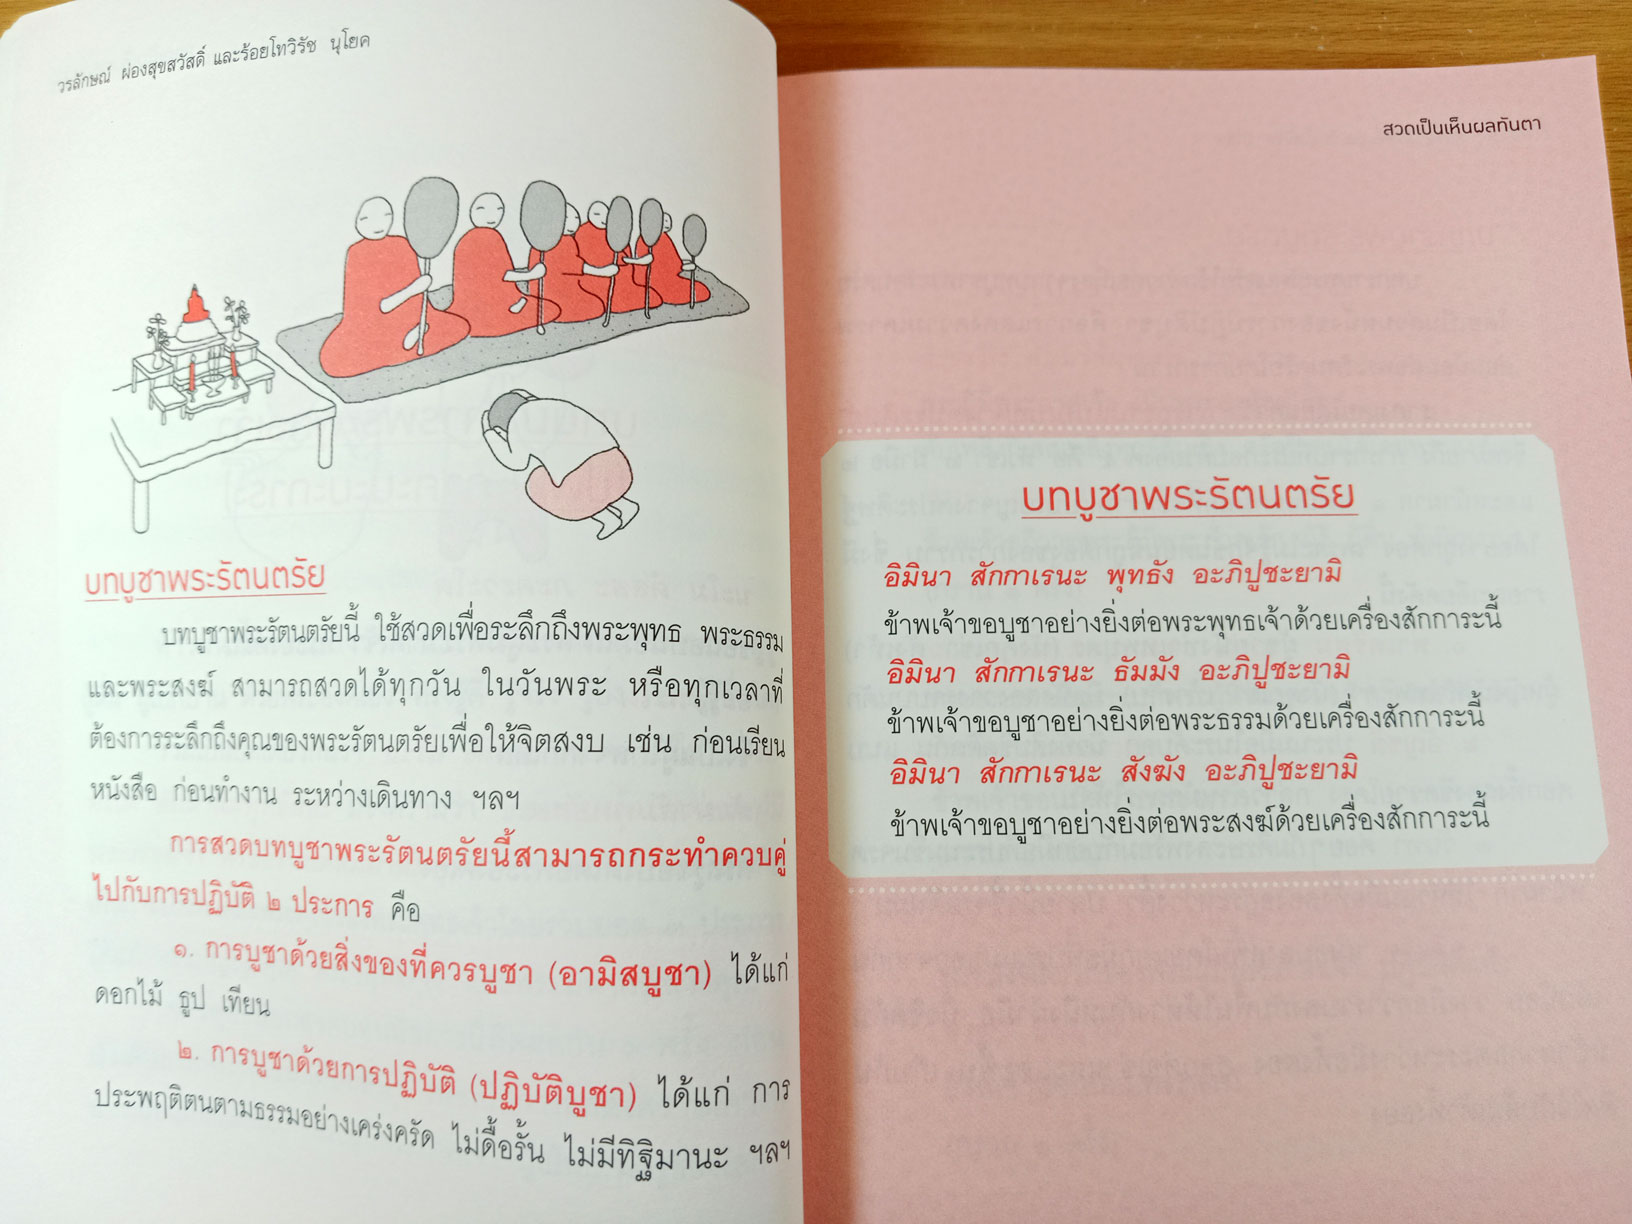 วรลักษณ์ ผ่องสุขสวัสดิ์ และร้อยโทวิรัช นุโยค
บทบูชาพระรัตนตรัย
บทบูชาพระรัตนตรัยนี้ ใช้สวดเพื่อระลึกถึงพระพุทธ พระธรรม
และพระสงฆ์ สามารถสวดได้ทุกวัน ในวันพระ หรือทุกเวลาที่
ต้องการระลึกถึงคุณของพระรัตนตรัยเพื่อให้จิตสงบ เช่น ก่อนเรียน
หนังสือ ก่อนทำงาน ระหว่างเดินทาง ฯลฯ
การสวดบทบูชาพระรัตนตรัยนี้สามารถกระทำควบคู่
ไปกับการปฏิบัติ ๒ ประการ คือ
๑. การบูชาด้วยสิ่งของที่ควรบูชา (อามิสบูชา) ได้แก่
ดอกไม้ ธูป เทียน
๒. การบูชาด้วยการปฏิบัติ (ปฏิบัติบูชา) ได้แก่ การ
ประพฤติตนตามธรรมอย่างเคร่งครัด ไม่ดื้อรั้น ไม่มีทิฐิมานะ ฯลฯ
สวดเป็นเห็นผลทันตา
บทบูชาพระรัตนตรัย
อิมินา สักกาเรนะ พุทธัง อะภิปูชะยามิ
ข้าพเจ้าขอบูชาอย่างยิ่งต่อพระพุทธเจ้าด้วยเครื่องสักการะนี้
อิมินา สักกาเรนะ ธัมมัง อะภิปูชะยามิ
ข้าพเจ้าขอบูชาอย่างยิ่งต่อพระธรรมด้วยเครื่องสักการะนี้
อิมินา สักกาเรนะ สังฆัง อะภิปูชะยามิ
ข้าพเจ้าขอบูชาอย่างยิ่งต่อพระสงฆ์ด้วยเครื่องสักการะนี้